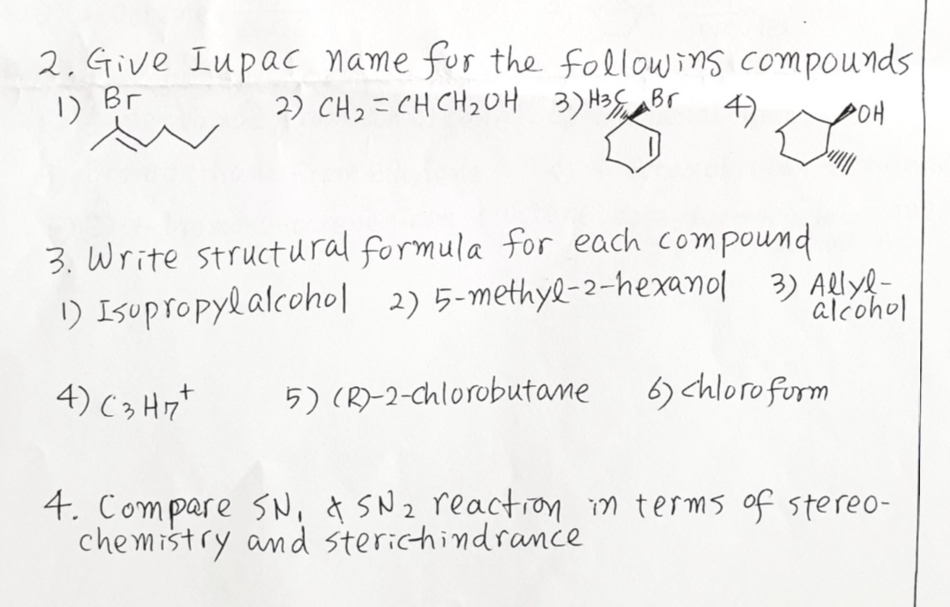 2. Give Iupac name for the following compounds
1) Br 2) CH₂=CHCH₂OH 3) H3C Br 4) OH
3. Write structural formula for each compound
1) Isopropylalcohol 2) 5-methyl-2-hexanol 3) Allyl-
alcohol
4) C₃H₇⁺ 5) (R)-2-chlorobutane 6) chloroform
4. Compare SN₁ & SN₂ reaction in terms of stereo-
chemistry and sterichindrance